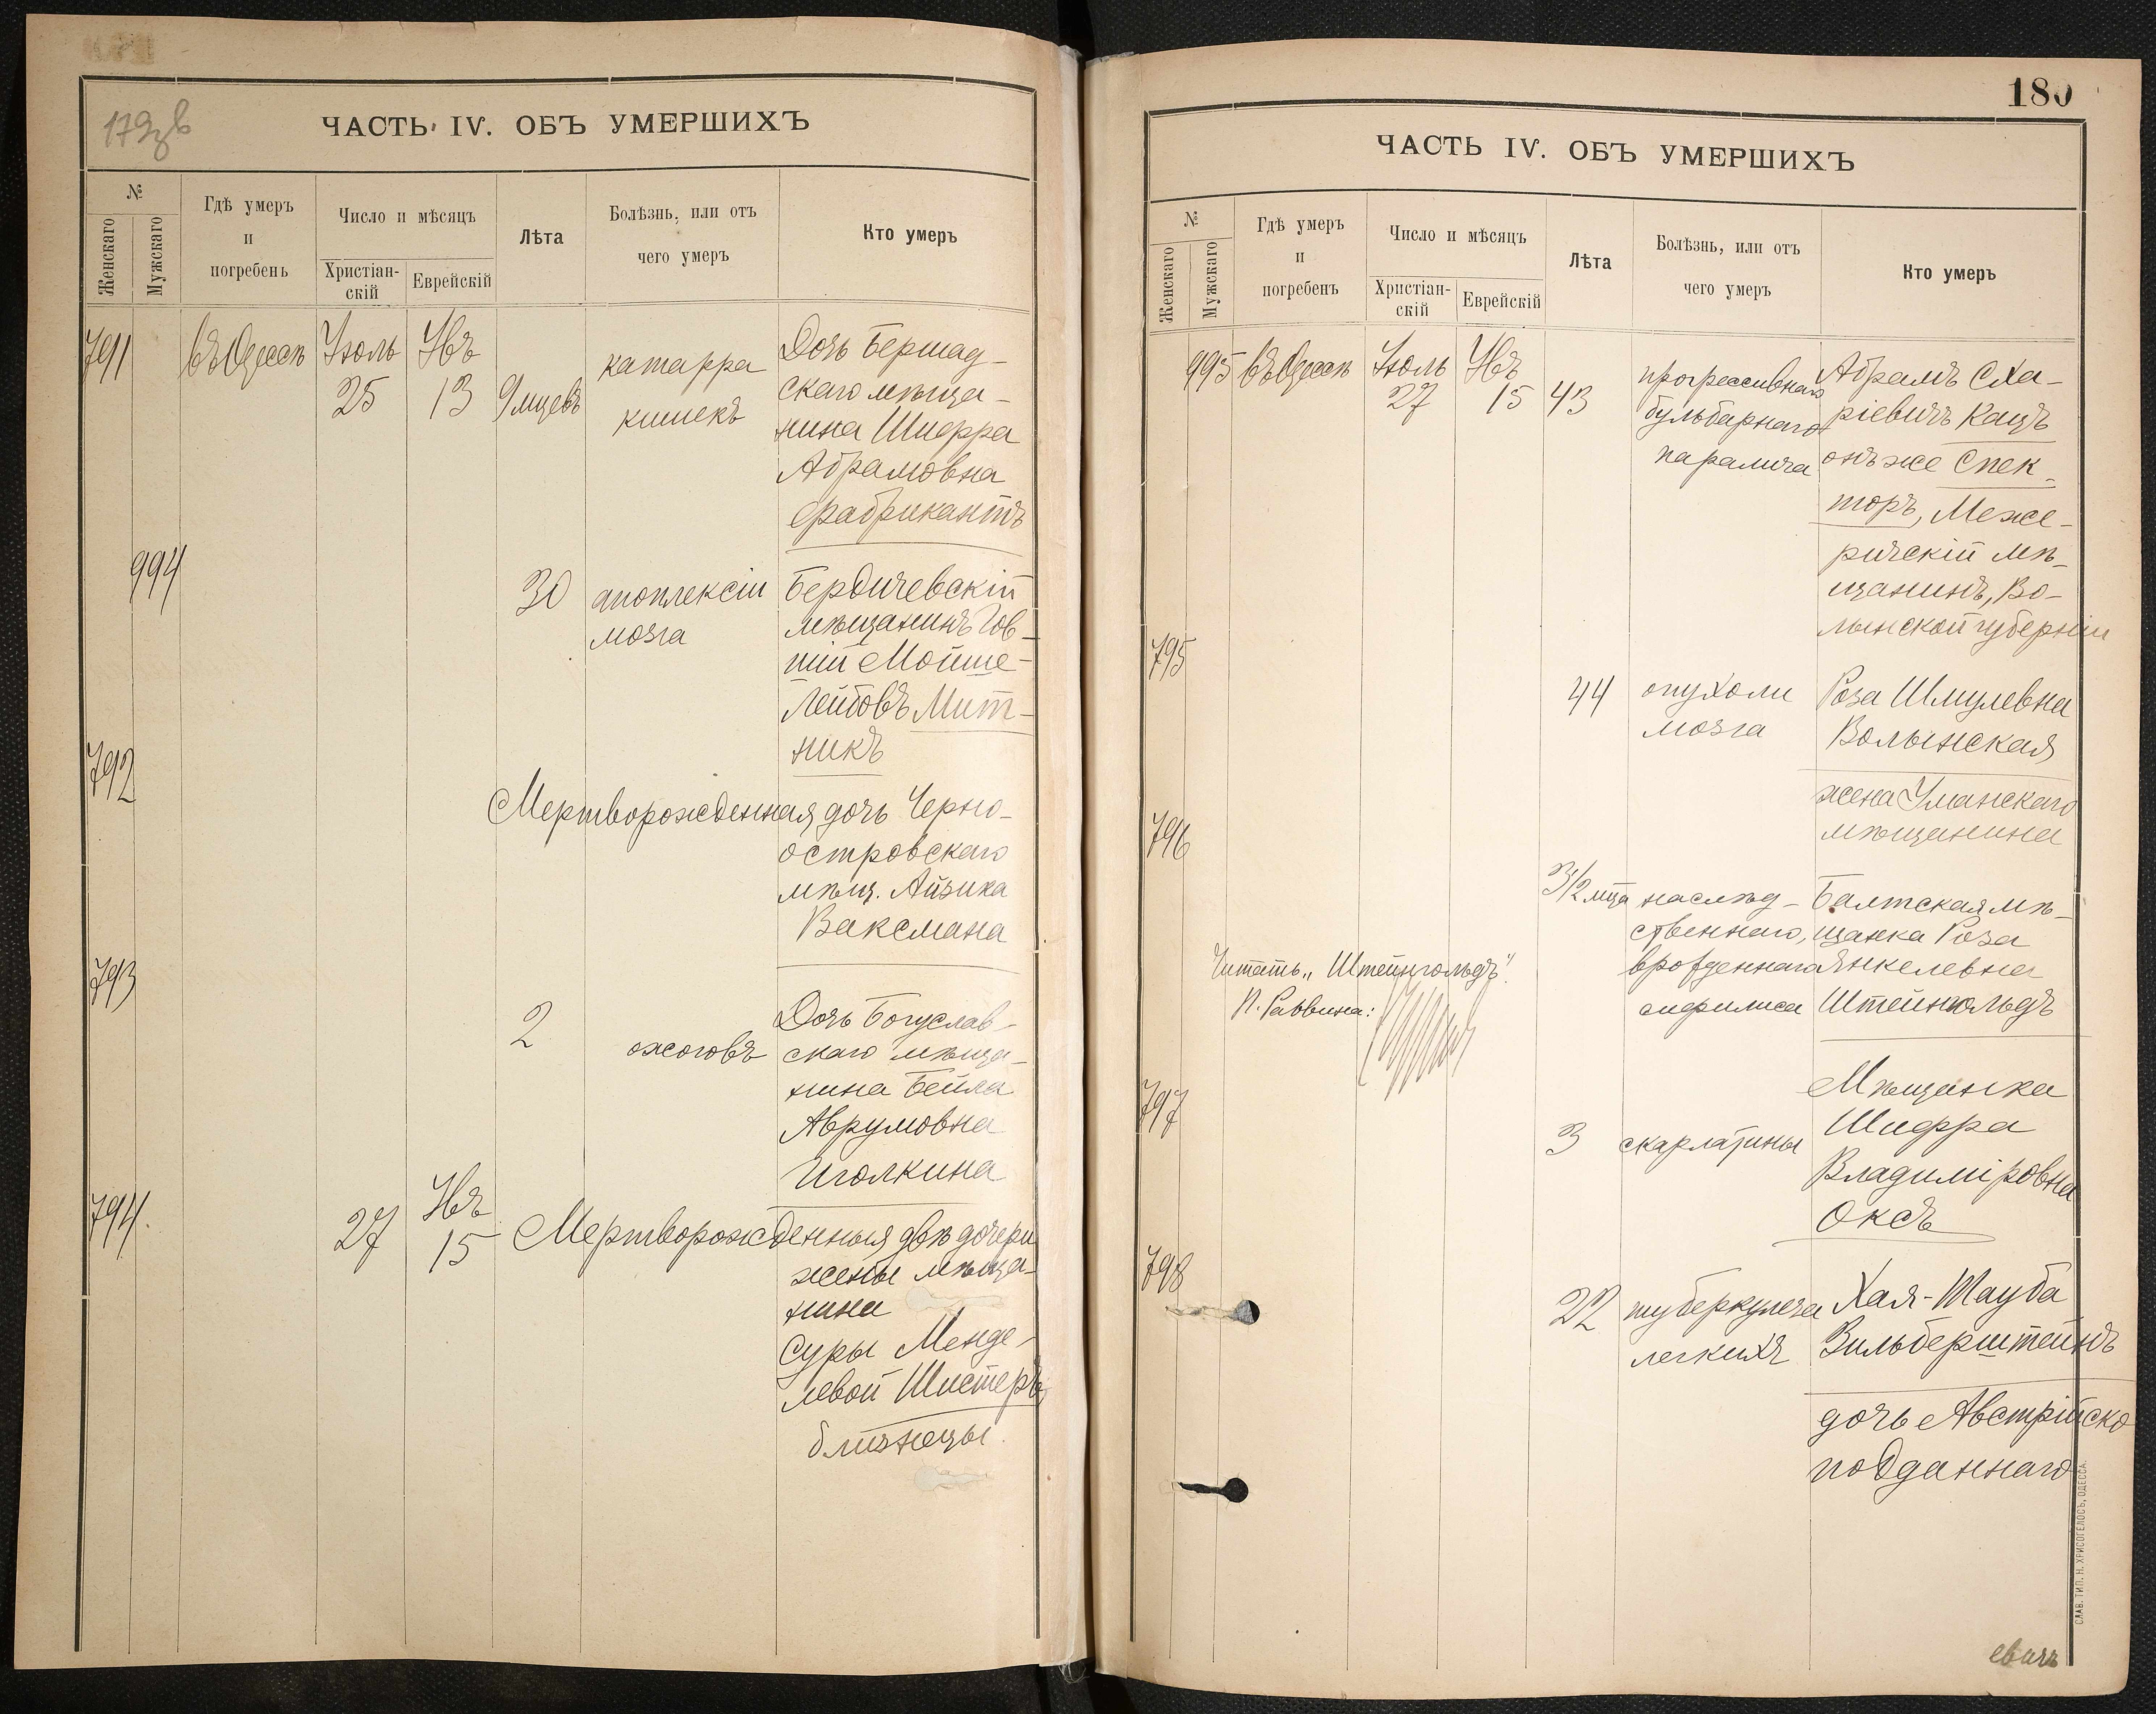 ЧАСТЬ IV. ОБЪ УМЕРШИХЪ
№
Женскаго
Мужскаго
Гдѣ умеръ
и
погребенъ
Число и мѣсяцъ
Христіан-
скій
Еврейскій
Лѣта
Болѣзнь, или отъ
чего умеръ
Кто умеръ
791 въ Одессѣ Іюль 25 Увъ 13 9 мцевъ
катарра
кишекъ
Дочь Бершад-
скаго мѣща-
нина Шифра
Абрамовна
Фабрикантъ
994 30
апоплексіи
мозга
Бердичевскій
мѣщанинъ
Мойше-
Лейбовъ Мит-
никъ
792
Мертворожденная дочь Черно-
островскаго
мѣщ. Айзика
Ваксмана
793 2 ожоговъ
Дочь Богуслав-
скаго мѣща-
нина Бейла
Аврумовна
Иголкина
794. 27 Увъ 15
Мертворожденныя двѣ дочери
жены мѣща-
нина
Суры Менде-
левой Шистеръ,
близнецы.
180
ЧАСТЬ IV. ОБЪ УМЕРШИХЪ
№
Женскаго
Мужскаго
Гдѣ умеръ
и
погребенъ
Число и мѣсяцъ
Христіан-
скій
Еврейскій
Лѣта
Болѣзнь, или отъ
чего умеръ
Кто умеръ
995 въ Одессѣ Іюль 27 Увъ 15 43
прогрессивнаго
бульбарнаго
паралича
Абрамъ Сха-
ріевичъ Кацъ
онъ же Спек-
торъ, Меже-
ричскій мѣ-
щанинъ, Во-
лынской губерніи
795 44
опухоли
мозга
Роза Шмулевна
Волынская
жена Уманскаго
мѣщанина
796 3 1/2 мца
наслѣд-
ственнаго,
врожденнаго
сифилиса
Балтская мѣ-
щанка Роза
Янкелевна
Штейнгольдъ
Читать „Штейнгольдъ".
П. Раввина:
797 3 скарлатины
Мѣщанка
Шифра
Владиміровна
Оксъ
798 22
туберкулеза
легкихъ
Хая-Тауба
Зильберштейнъ
дочь Австрійско
подданнаго
СЛАВ. ТИП. Н. ХРИСОГЕЛОСЪ, ОДЕССА.